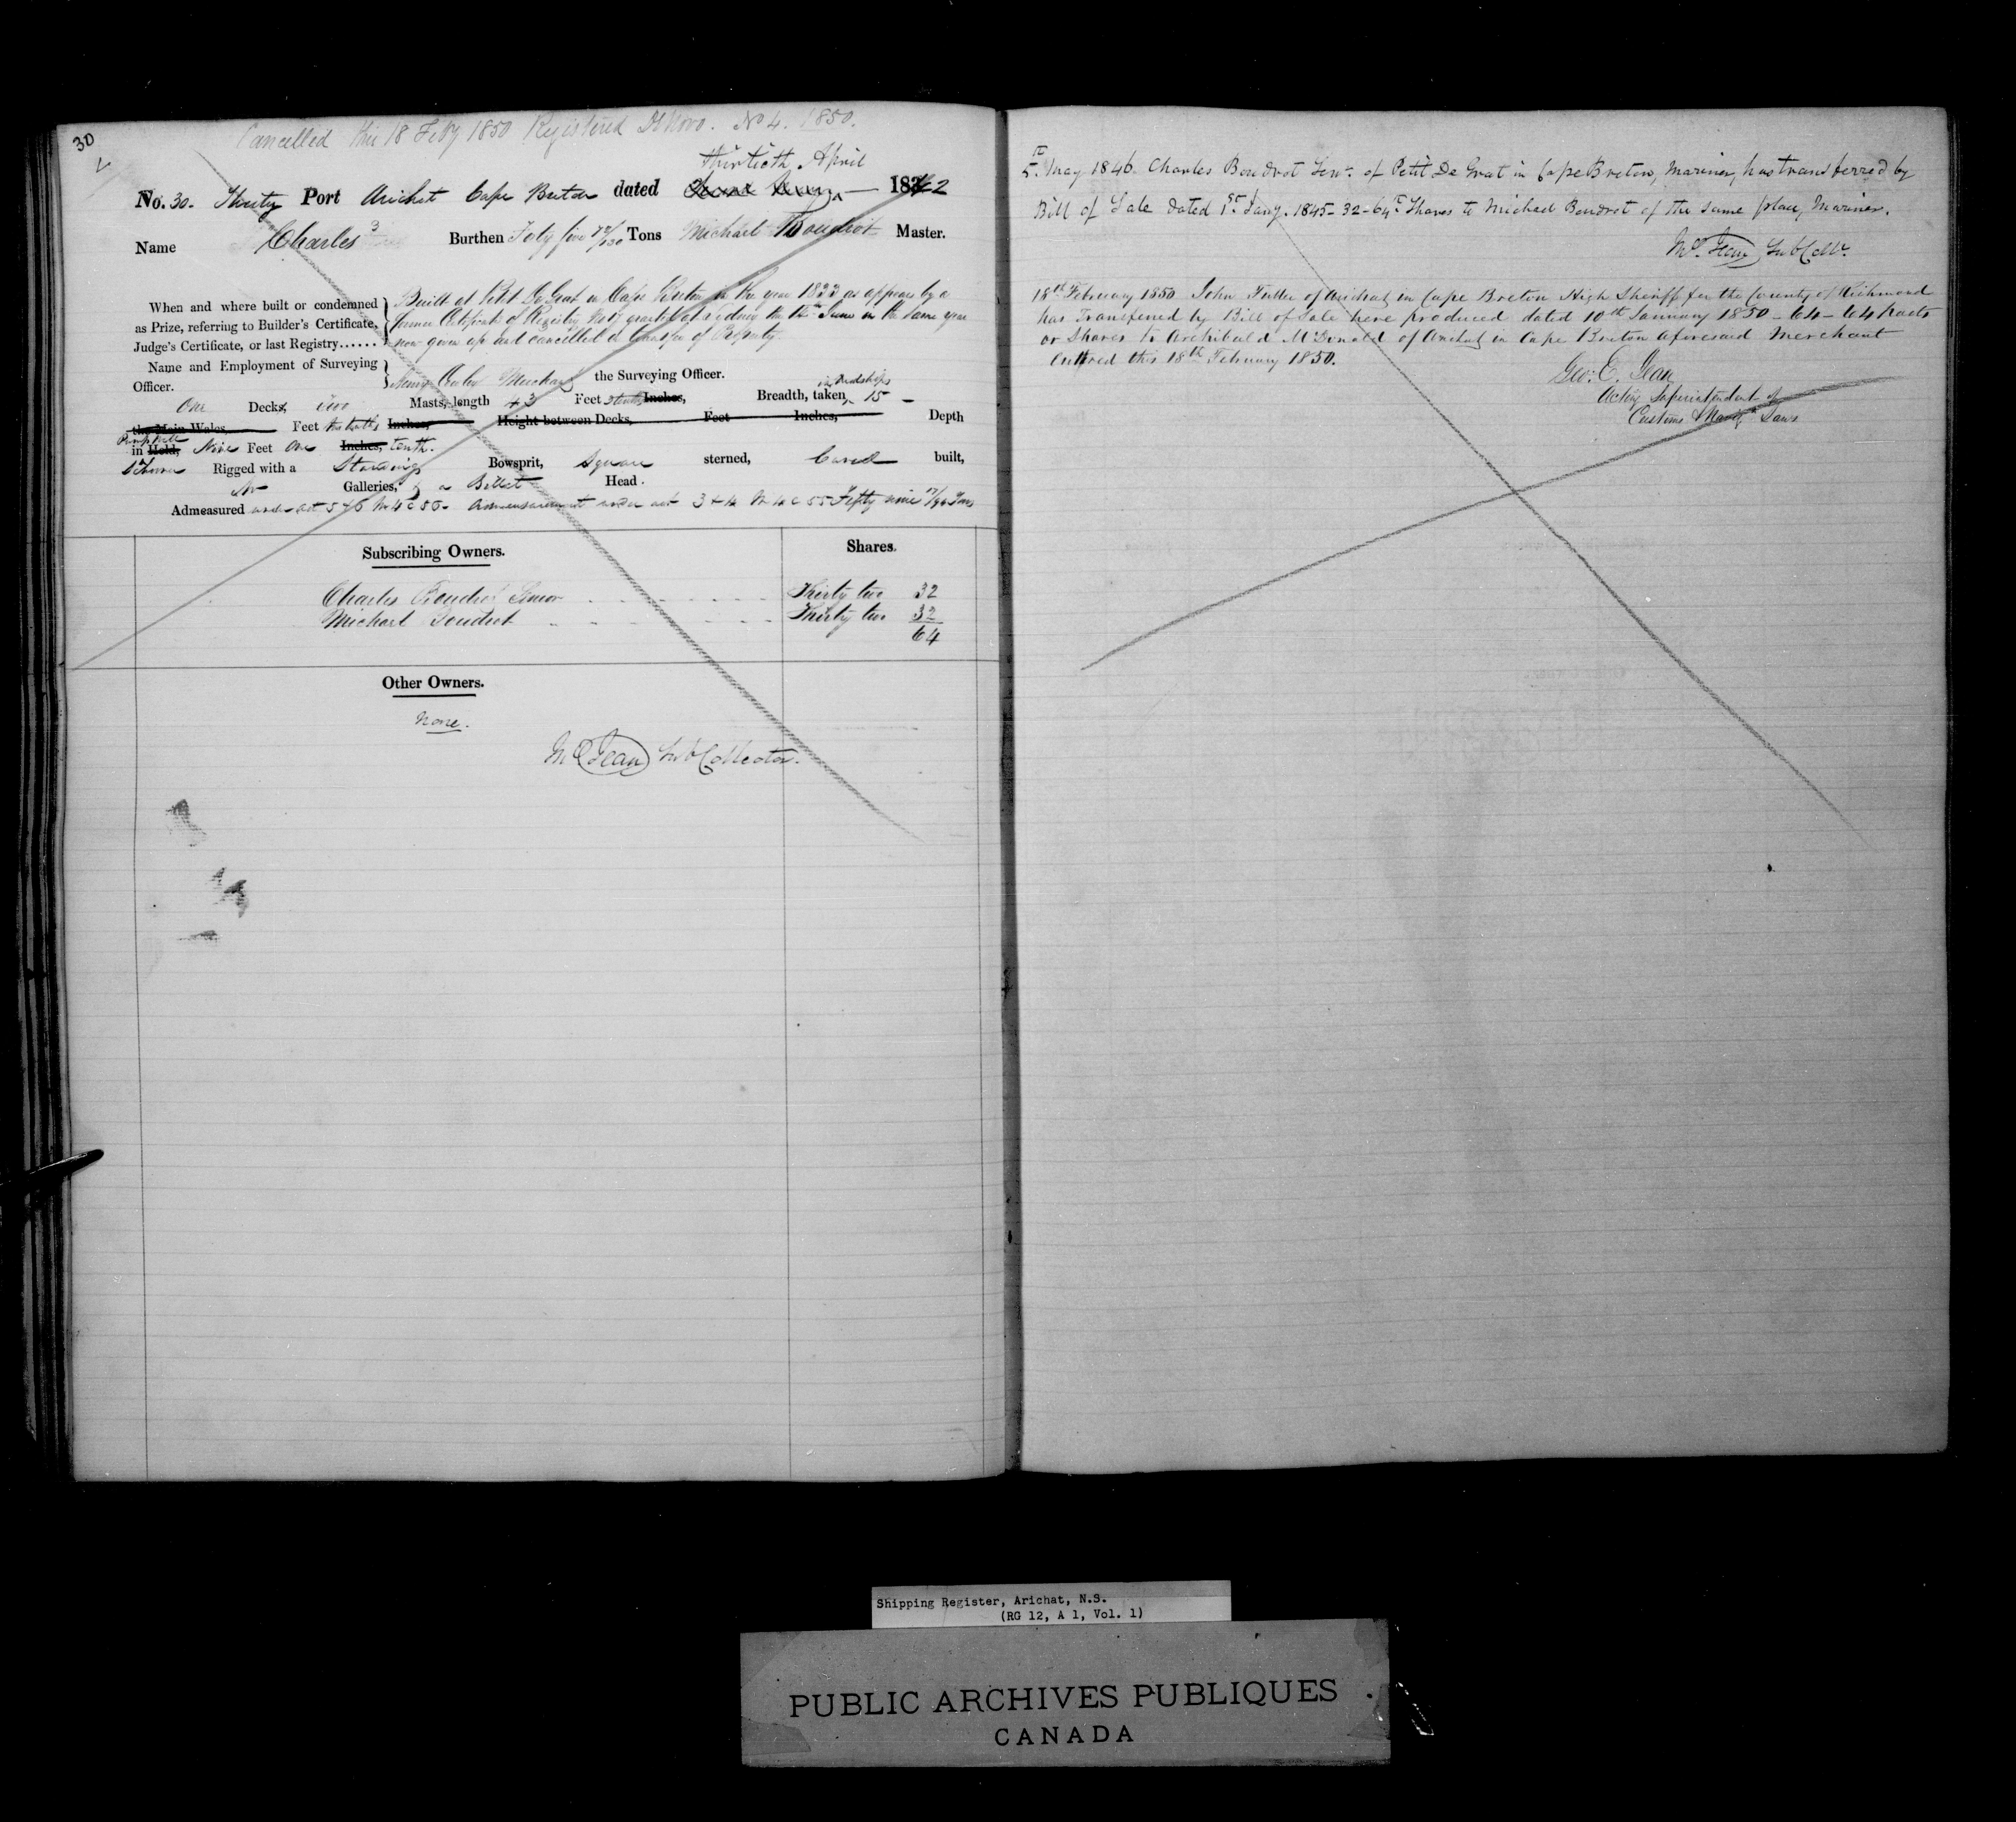 30
Cancelled this 18 Feby 1850 Registered De Novo. No 4. 1850.
thirtieth April
No. 30. Thirty Port Arichat Cape Breton dated 1842
Name Charles Burthen Forty five Tons Michael Boudrot Master.
When and where built or condemned as Prize, referring to Builder's Certificate, Judge's Certificate, or last Registry......
Built at Petit De Grat in Cape Breton in the year 1833 as appears by a
former Certificate of Registry No granted at Sydney the June in the same year
now given up and cancelled Transfer of Property
Name and Employment of Surveying Officer.
Henry the Surveying Officer.
in Midships
One Decks, two Masts, length 43 Feet Inches, Breadth, taken 15
the Main Wales Feet Inches, Height between Decks, Feet Inches, Depth
in Hold, Nine Feet One Inches, tenth.
Rigged with a Standing Bowsprit, Square sterned, Carvel built,
No Galleries, & a Billet Head.
Admeasured under act 5 & 6 W 4 c 56. Admeasurement under act 3 & 4 W 4 c 55 Fifty nine Tons
Subscribing Owners. Shares.
Charles Boudrot Senior Thirty two 32
Michael Boudrot Thirty two 32
64
Other Owners.
None.
McJean Sub Collector.
5th May 1846. Charles Boudrot Senr. of Petit De Grat in Cape Breton, Mariner, has transferred by
Bill of Sale dated 1st Jany. 1845 - 32-64th Shares to Michael Boudrot of the same place, Mariner.
Sub Collr.
18th February 1850 John Fuller of Arichat in Cape Breton High Sheriff for the County of Richmond
has Transferred by Bill of Sale here produced dated 10th January 1850 - 64-64 Parts
or Shares to Archibald McDonald of Arichat in Cape Breton aforesaid Merchant
Entered this 18th February 1850.
Geo: E. Jean
Acting Superintendent of
Customs & Navign Laws
Shipping Register, Arichat, N.S.
(RG 12, A 1, Vol. 1)
PUBLIC ARCHIVES PUBLIQUES
CANADA